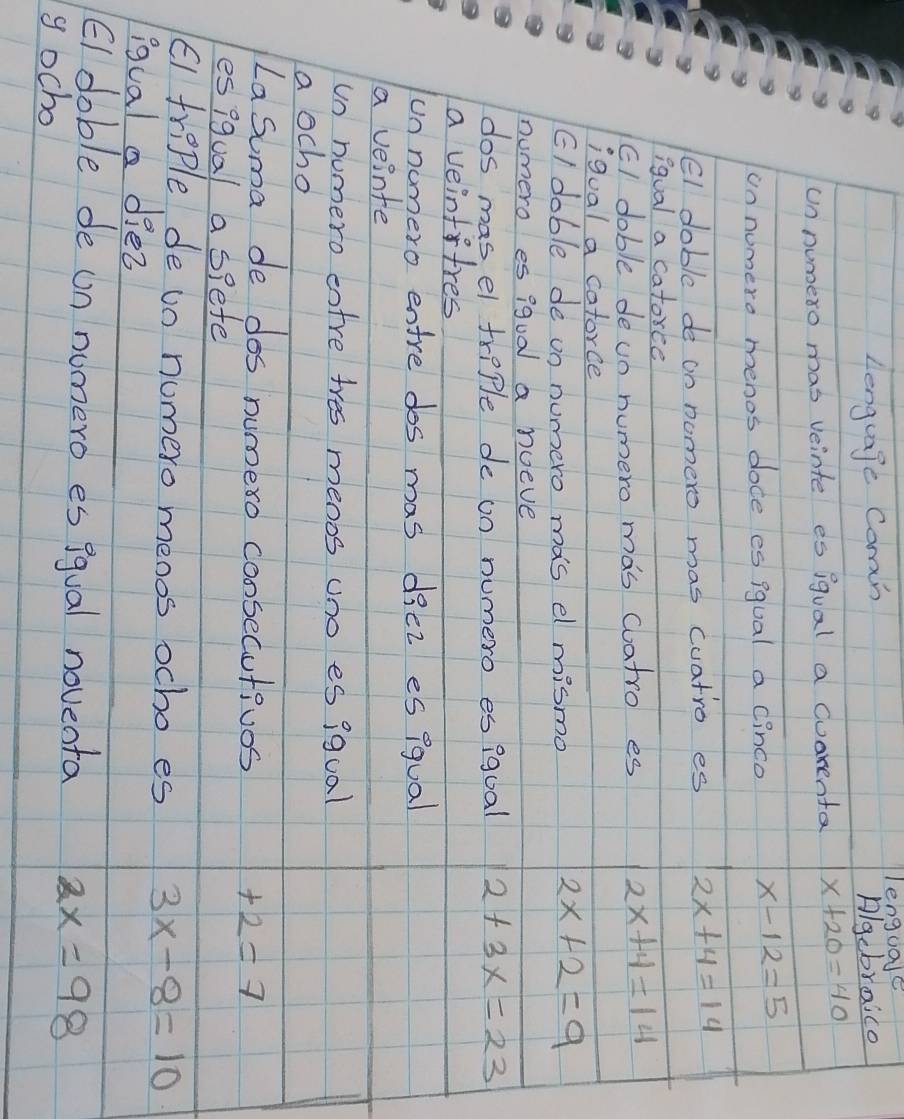 Lenguaje Común
lenguaje
Algebraico
un numero mas veinte es igual a cuarenta
x+20=40
un numero menos doce es igual a cinco
x-12=5
El doble de un numero mas cuatro es
igual a catorce
2x+4=14
El doble de un numero más cuatro es
igual a catorce
2x+4=14
El doble de un numero más el mismo
numero es igual a nueve
2x+2=9
dos mas el triple de un numero es igual
a veintitres
2+3x=23
un numero entre dos mas diez es igual
a veinte
un numero entre tres menos uno es igual
a ocho
La Suma de dos numero consecutivos
es igual a siete
+2=7
El triple de un numero menos ocho es
igual a diez
3x-8=10
El doble de un numero es igual noventa
y ocho
2x=98